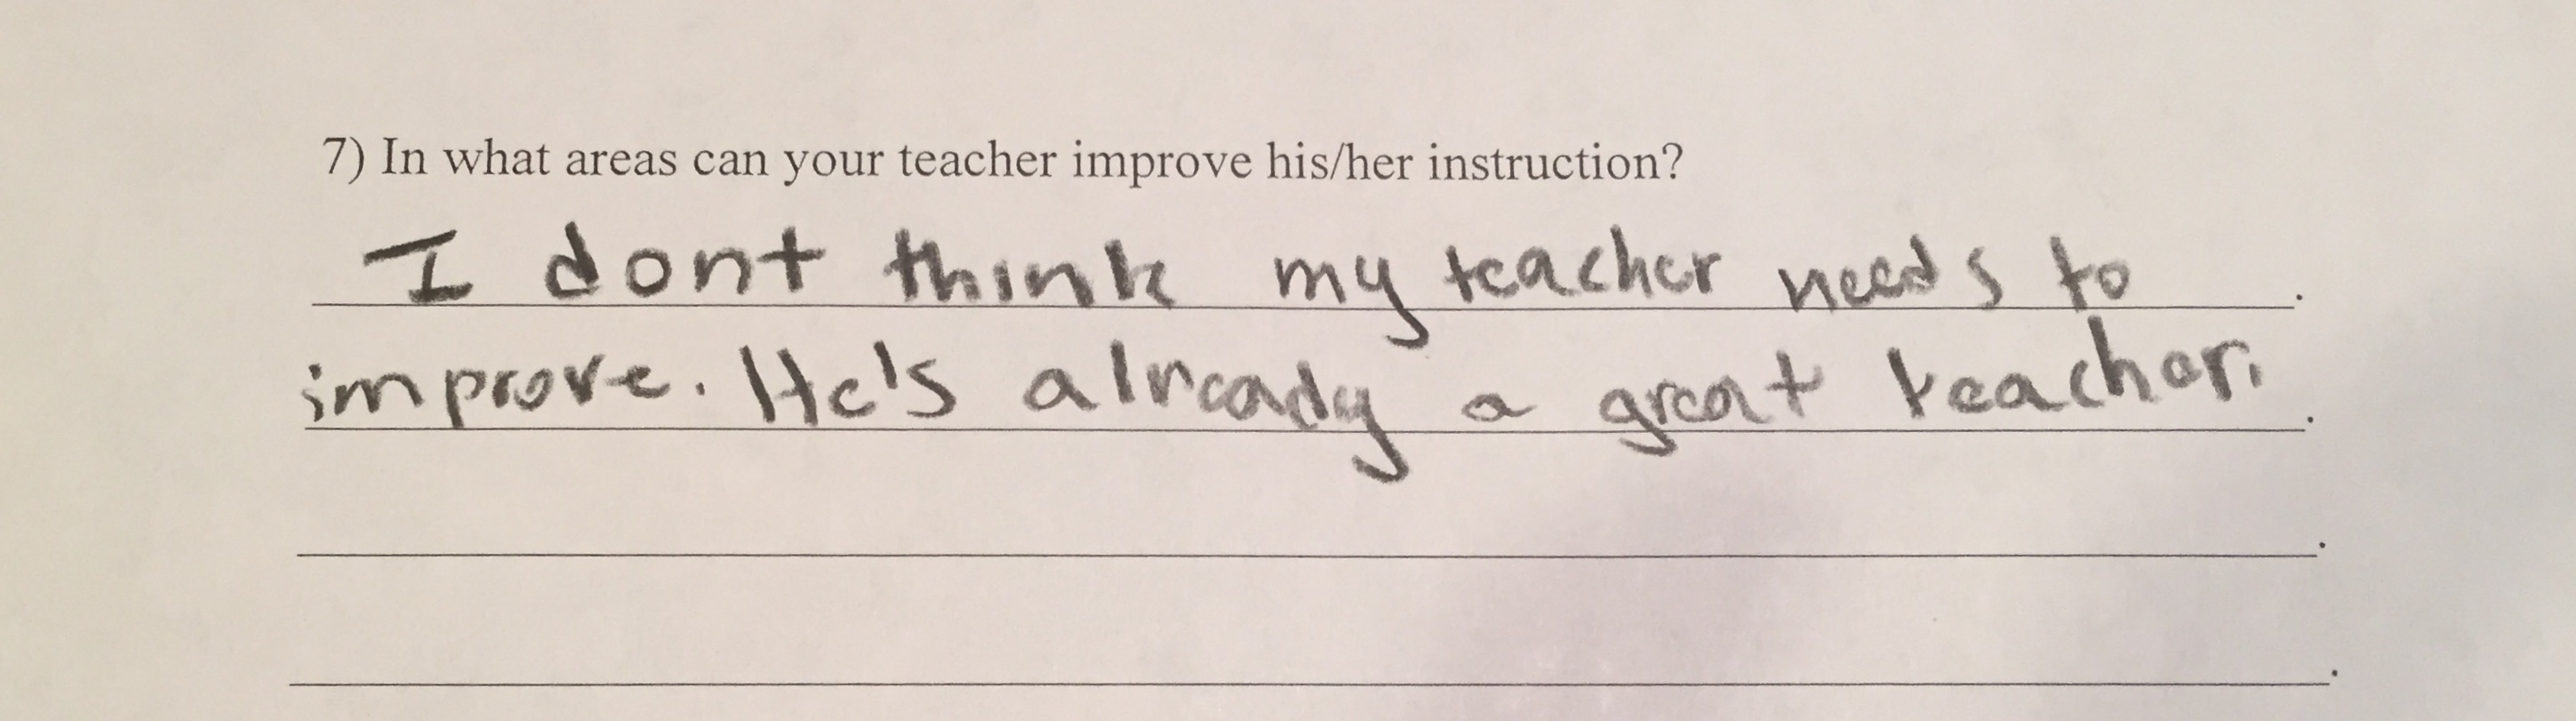 7) In what areas can your teacher improve his/her instruction?
I dont think my teacher needs to
improve. He's already a great teacher.